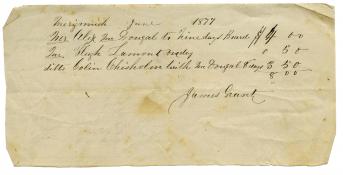 Merigomish June 1877
Mr Alex McDougal to Nine days Board $4 00
Hugh Lamont 0 50
ditto Colin Chisholm with McDougal 7 days 3 50
8 00
James Grant